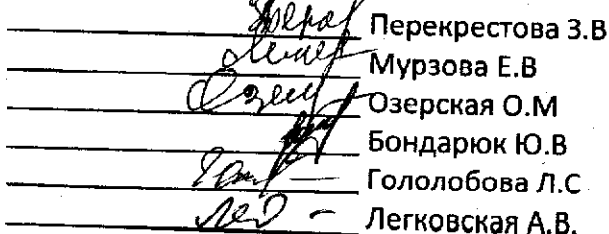 Перекрестова З.В
Мурзова Е.В
Озерская О.М
Бондарюк Ю.В
Гололобова Л.С
Легковская А.В.